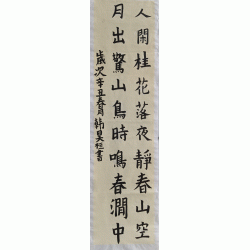 人閒桂花落夜靜春山空
月出驚山鳥時鳴春澗中
歲次辛丑春月韩昊桓書